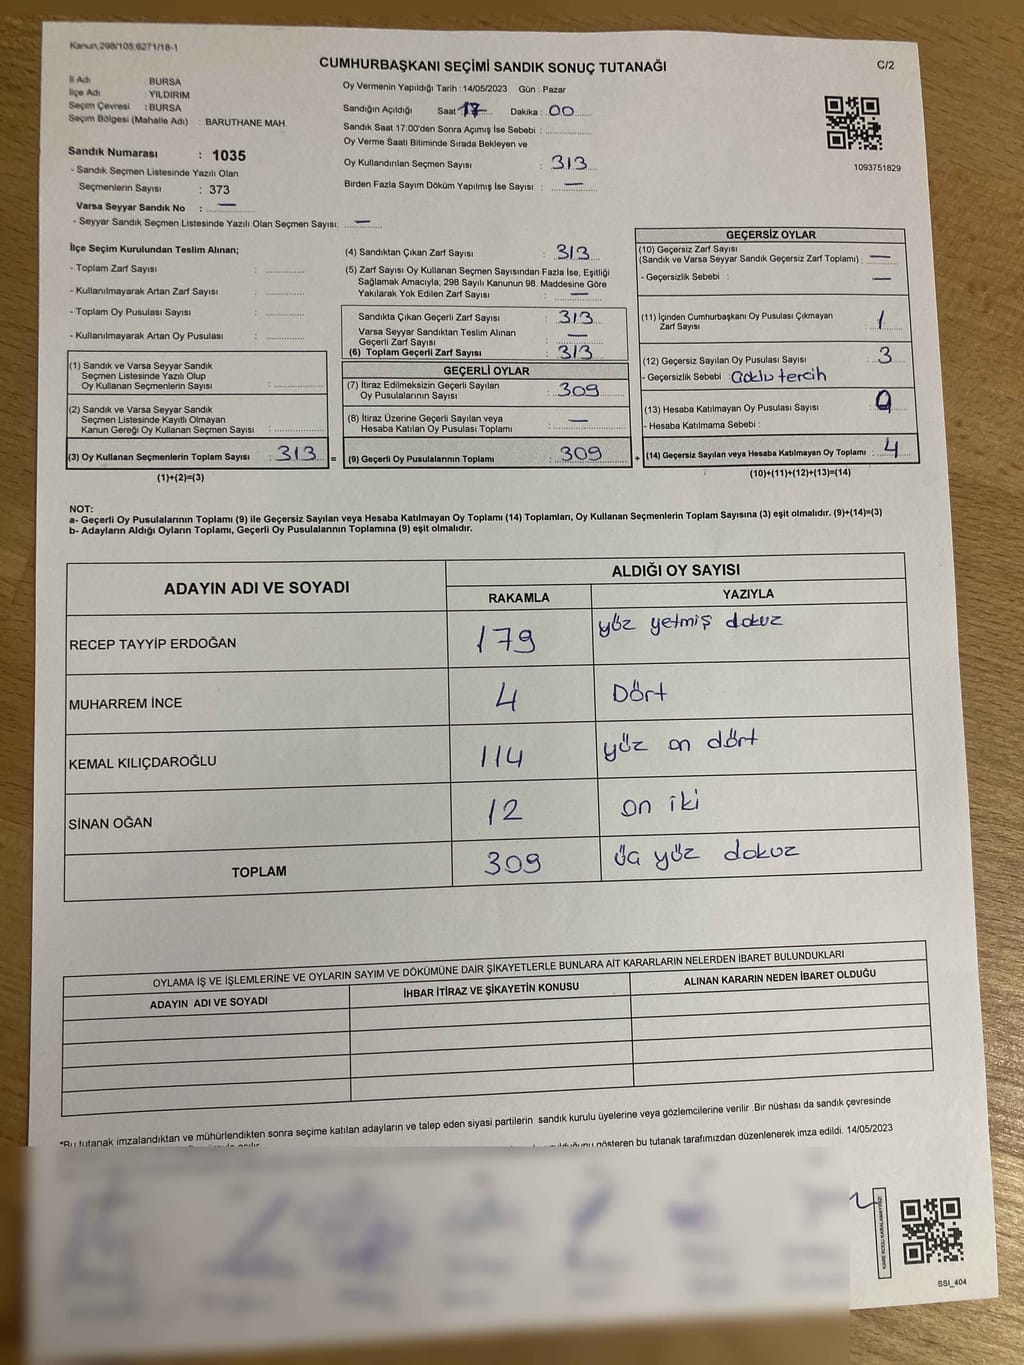 Kanun,298/105;6271/18-1
CUMHURBAŞKANI SEÇİMİ SANDIK SONUÇ TUTANAĞI
C/2
İl Adı : BURSA
İlçe Adı : YILDIRIM
Seçim Çevresi : BURSA
Seçim Bölgesi (Mahalle Adı) : BARUTHANE MAH.
Sandık Numarası : 1035
- Sandık Seçmen Listesinde Yazılı Olan
Seçmenlerin Sayısı : 373
Varsa Seyyar Sandık No : —
- Seyyar Sandık Seçmen Listesinde Yazılı Olan Seçmen Sayısı: —
Oy Vermenin Yapıldığı Tarih : 14/05/2023 Gün : Pazar
Sandığın Açıldığı Saat : 17 Dakika : 00
Sandık Saat 17:00'den Sonra Açımış İse Sebebi :
Oy Verme Saati Bitiminde Sırada Bekleyen ve
Oy Kullandırılan Seçmen Sayısı : 313
Birden Fazla Sayım Döküm Yapılmış İse Sayısı : —
1093751829
İlçe Seçim Kurulundan Teslim Alınan;
- Toplam Zarf Sayısı :
- Kullanılmayarak Artan Zarf Sayısı :
- Toplam Oy Pusulası Sayısı :
- Kullanılmayarak Artan Oy Pusulası :
(1) Sandık ve Varsa Seyyar Sandık
Seçmen Listesinde Yazılı Olup
Oy Kullanan Seçmenlerin Sayısı :
(2) Sandık ve Varsa Seyyar Sandık
Seçmen Listesinde Kayıtlı Olmayan
Kanun Gereği Oy Kullanan Seçmen Sayısı :
(3) Oy Kullanan Seçmenlerin Toplam Sayısı : 313 =
(1)+(2)=(3)
(4) Sandıktan Çıkan Zarf Sayısı : 313
(5) Zarf Sayısı Oy Kullanan Seçmen Sayısından Fazla İse, Eşitliği
Sağlamak Amacıyla; 298 Sayılı Kanunun 98. Maddesine Göre
Yakılarak Yok Edilen Zarf Sayısı : —
Sandıkta Çıkan Geçerli Zarf Sayısı : 313
Varsa Seyyar Sandıktan Teslim Alınan
Geçerli Zarf Sayısı : —
(6) Toplam Geçerli Zarf Sayısı : 313
GEÇERLİ OYLAR
(7) İtiraz Edilmeksizin Geçerli Sayılan
Oy Pusulalarının Sayısı : 309
(8) İtiraz Üzerine Geçerli Sayılan veya
Hesaba Katılan Oy Pusulası Toplamı : —
(9) Geçerli Oy Pusulalarının Toplamı : 309 +
GEÇERSİZ OYLAR
(10) Geçersiz Zarf Sayısı
(Sandık ve Varsa Seyyar Sandık Geçersiz Zarf Toplamı) : —
- Geçersizlik Sebebi : —
(11) İçinden Cumhurbaşkanı Oy Pusulası Çıkmayan
Zarf Sayısı : 1
(12) Geçersiz Sayılan Oy Pusulası Sayısı : 3
- Geçersizlik Sebebi : Çoklu tercih
(13) Hesaba Katılmayan Oy Pusulası Sayısı : 0
- Hesaba Katılmama Sebebi :
(14) Geçersiz Sayılan veya Hesaba Katılmayan Oy Toplamı : 4
(10)+(11)+(12)+(13)=(14)
NOT:
a- Geçerli Oy Pusulalarının Toplamı (9) ile Geçersiz Sayılan veya Hesaba Katılmayan Oy Toplamı (14) Toplamları, Oy Kullanan Seçmenlerin Toplam Sayısına (3) eşit olmalıdır. (9)+(14)=(3)
b- Adayların Aldığı Oyların Toplamı, Geçerli Oy Pusulalarının Toplamına (9) eşit olmalıdır.
ADAYIN ADI VE SOYADI
ALDIĞI OY SAYISI
RAKAMLA YAZIYLA
RECEP TAYYİP ERDOĞAN 179 yüz yetmiş dokuz
MUHARREM İNCE 4 Dört
KEMAL KILIÇDAROĞLU 114 yüz on dört
SİNAN OĞAN 12 on iki
TOPLAM 309 üç yüz dokuz
OYLAMA İŞ VE İŞLEMLERİNE VE OYLARIN SAYIM VE DÖKÜMÜNE DAİR ŞİKAYETLERLE BUNLARA AİT KARARLARIN NELERDEN İBARET BULUNDUKLARI
ADAYIN ADI VE SOYADI İHBAR İTİRAZ VE ŞİKAYETİN KONUSU ALINAN KARARIN NEDEN İBARET OLDUĞU
*Bu tutanak imzalandıktan ve mühürlendikten sonra seçime katılan adayların ve talep eden siyasi partilerin sandık kurulu üyelerine veya gözlemcilerine verilir .Bir nüshası da sandık çevresinde
gösteren bu tutanak tarafımızdan düzenlenerek imza edildi. 14/05/2023
KARE KODU KARALAMAYINIZ!
SSİ_404